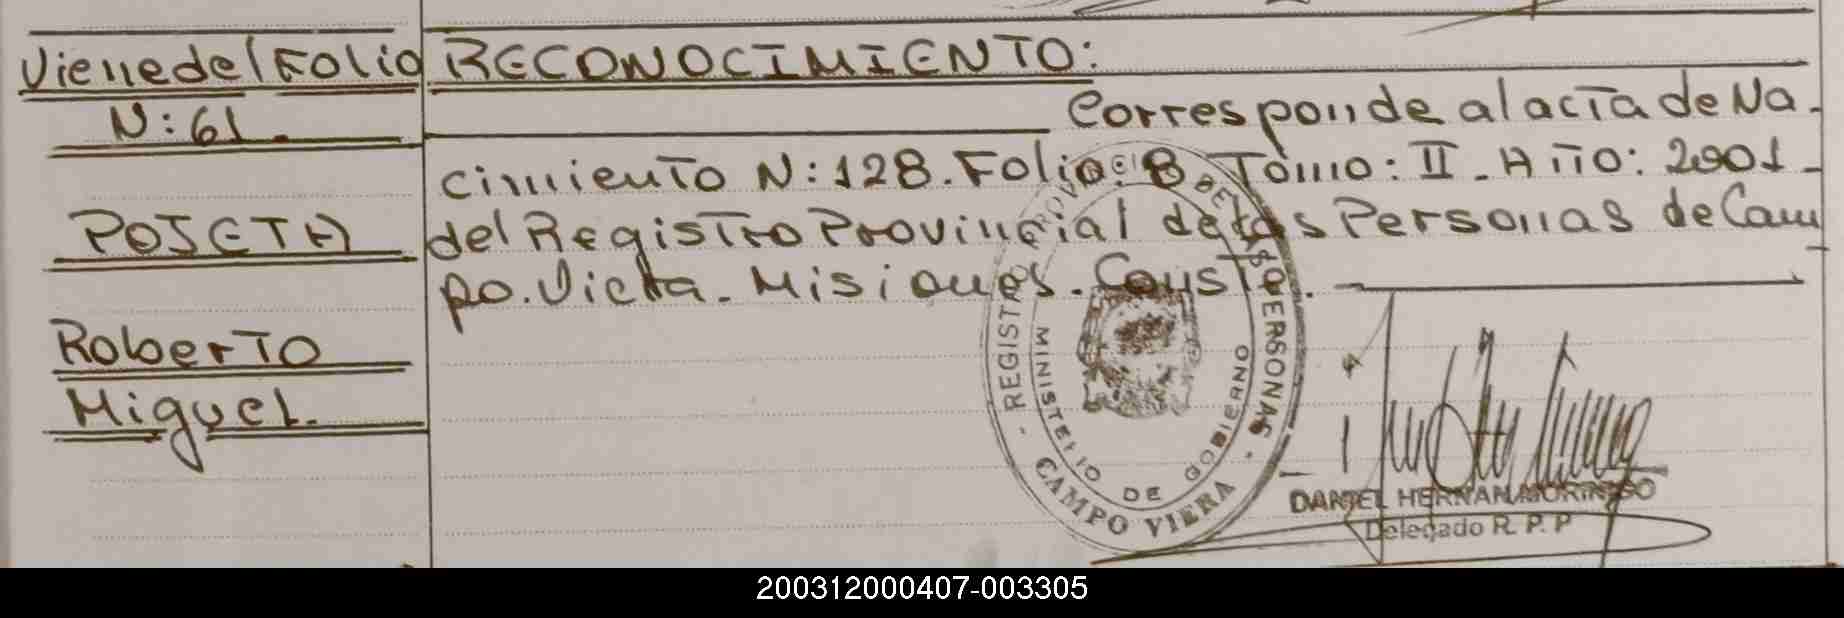 Viene del Folio
N: 61.
POSETA
Roberto
Miguel.
RECONOCIMIENTO:
Corresponde al acta de Na.
cimiento N: 128. Folio: 8. Tomo: II. Año: 2001.
del Registro Provincial de las Personas de Cam
po. Viera. Misiones. Conste.
REGISTRO PROVINCIAL DE LAS PERSONAS
MINISTERIO DE GOBIERNO
CAMPO VIERA
DANIEL HERNAN MORINIGO
Delegado R. P. P
200312000407-003305